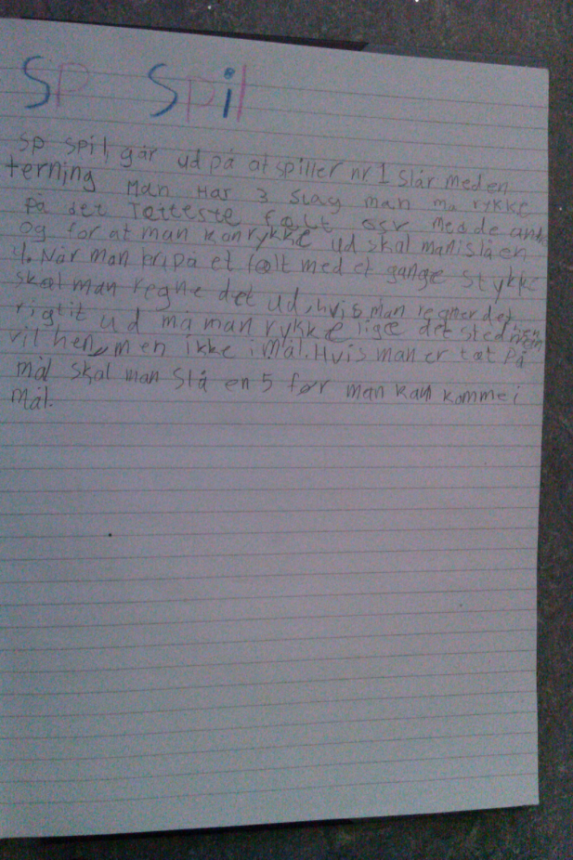 Sp Spil
Sp spil, går ud på at spiller nr 1 slår med en
terning Man Har 3 slag man må rykke
på det felt osv med de and
og for at man kan rykke ud skal man slå en
4. Når man på et felt med et gange stykke
skal man regne det ud, hvis man regner det
rigtit ud må man rykke lige det sted
vil hen, men ikke i mål. Hvis man er tæt på
mål skal man slå en 5 før man kan komme i
mål.